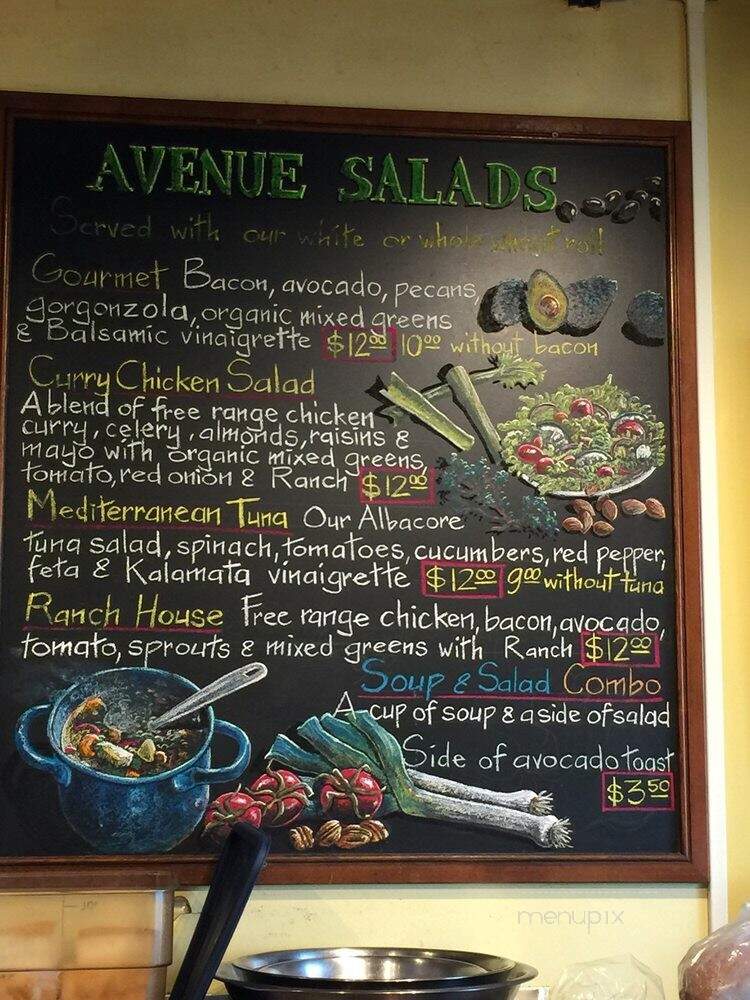 AVENUE SALADS
Served with our white or whole wheat roll
Gourmet Bacon, avocado, pecans,
gorgonzola, organic mixed greens
& Balsamic vinaigrette $12.00 10.00 without bacon
Curry Chicken Salad
A blend of free range chicken
curry, celery, almonds, raisins &
mayo with organic mixed greens,
tomato, red onion & Ranch $12.00
Mediterranean Tuna Our Albacore
tuna salad, spinach, tomatoes, cucumbers, red pepper,
feta & Kalamata vinaigrette $12.00 9.00 without tuna
Ranch House Free range chicken, bacon, avocado,
tomato, sprouts & mixed greens with Ranch $12.00
Soup & Salad Combo
A cup of soup & a side of salad
Side of avocado toast
$3.50
menupix